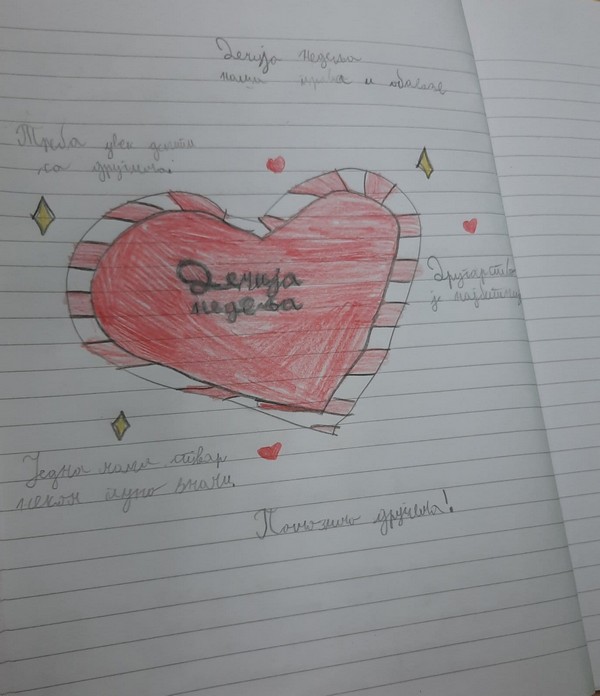 Дечија недеља
наша права и обавезе
Треба увек делити
са другима!
Дечија
недеља
Другарство
је најбитније
Једна мала ствар
неком пуно значи.
Помозимо другима!